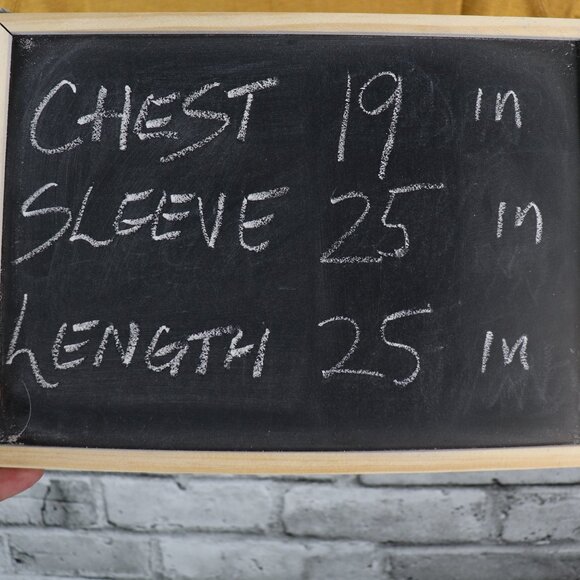 CHEST 19 in
SLEEVE 25 in
LENGTH 25 in